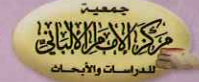 جمعية
مركز الإمام الألباني
للدراسات والأبحاث